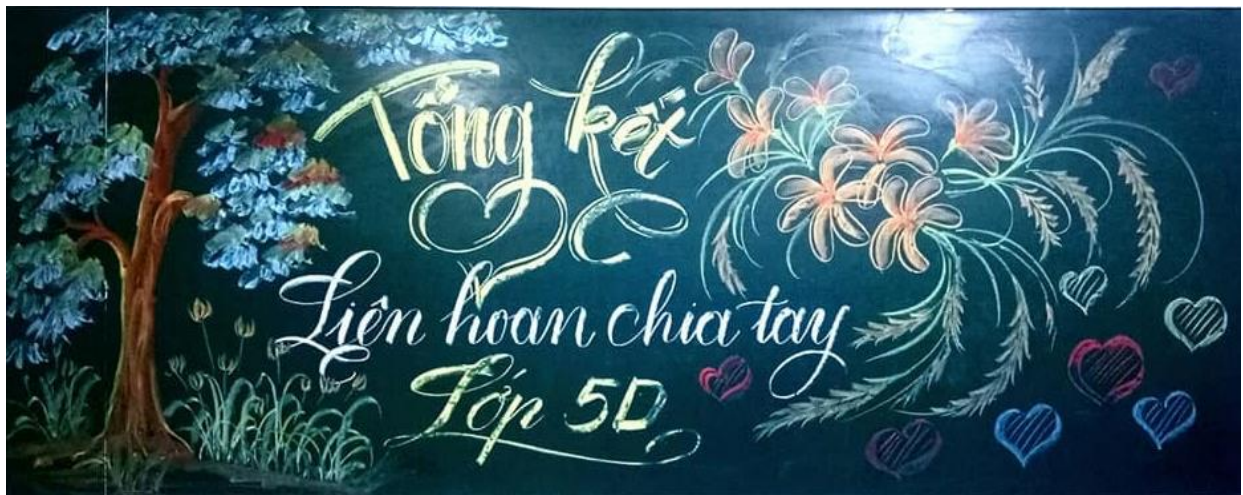 Tổng kết
Liên hoan chia tay
Lớp 5D